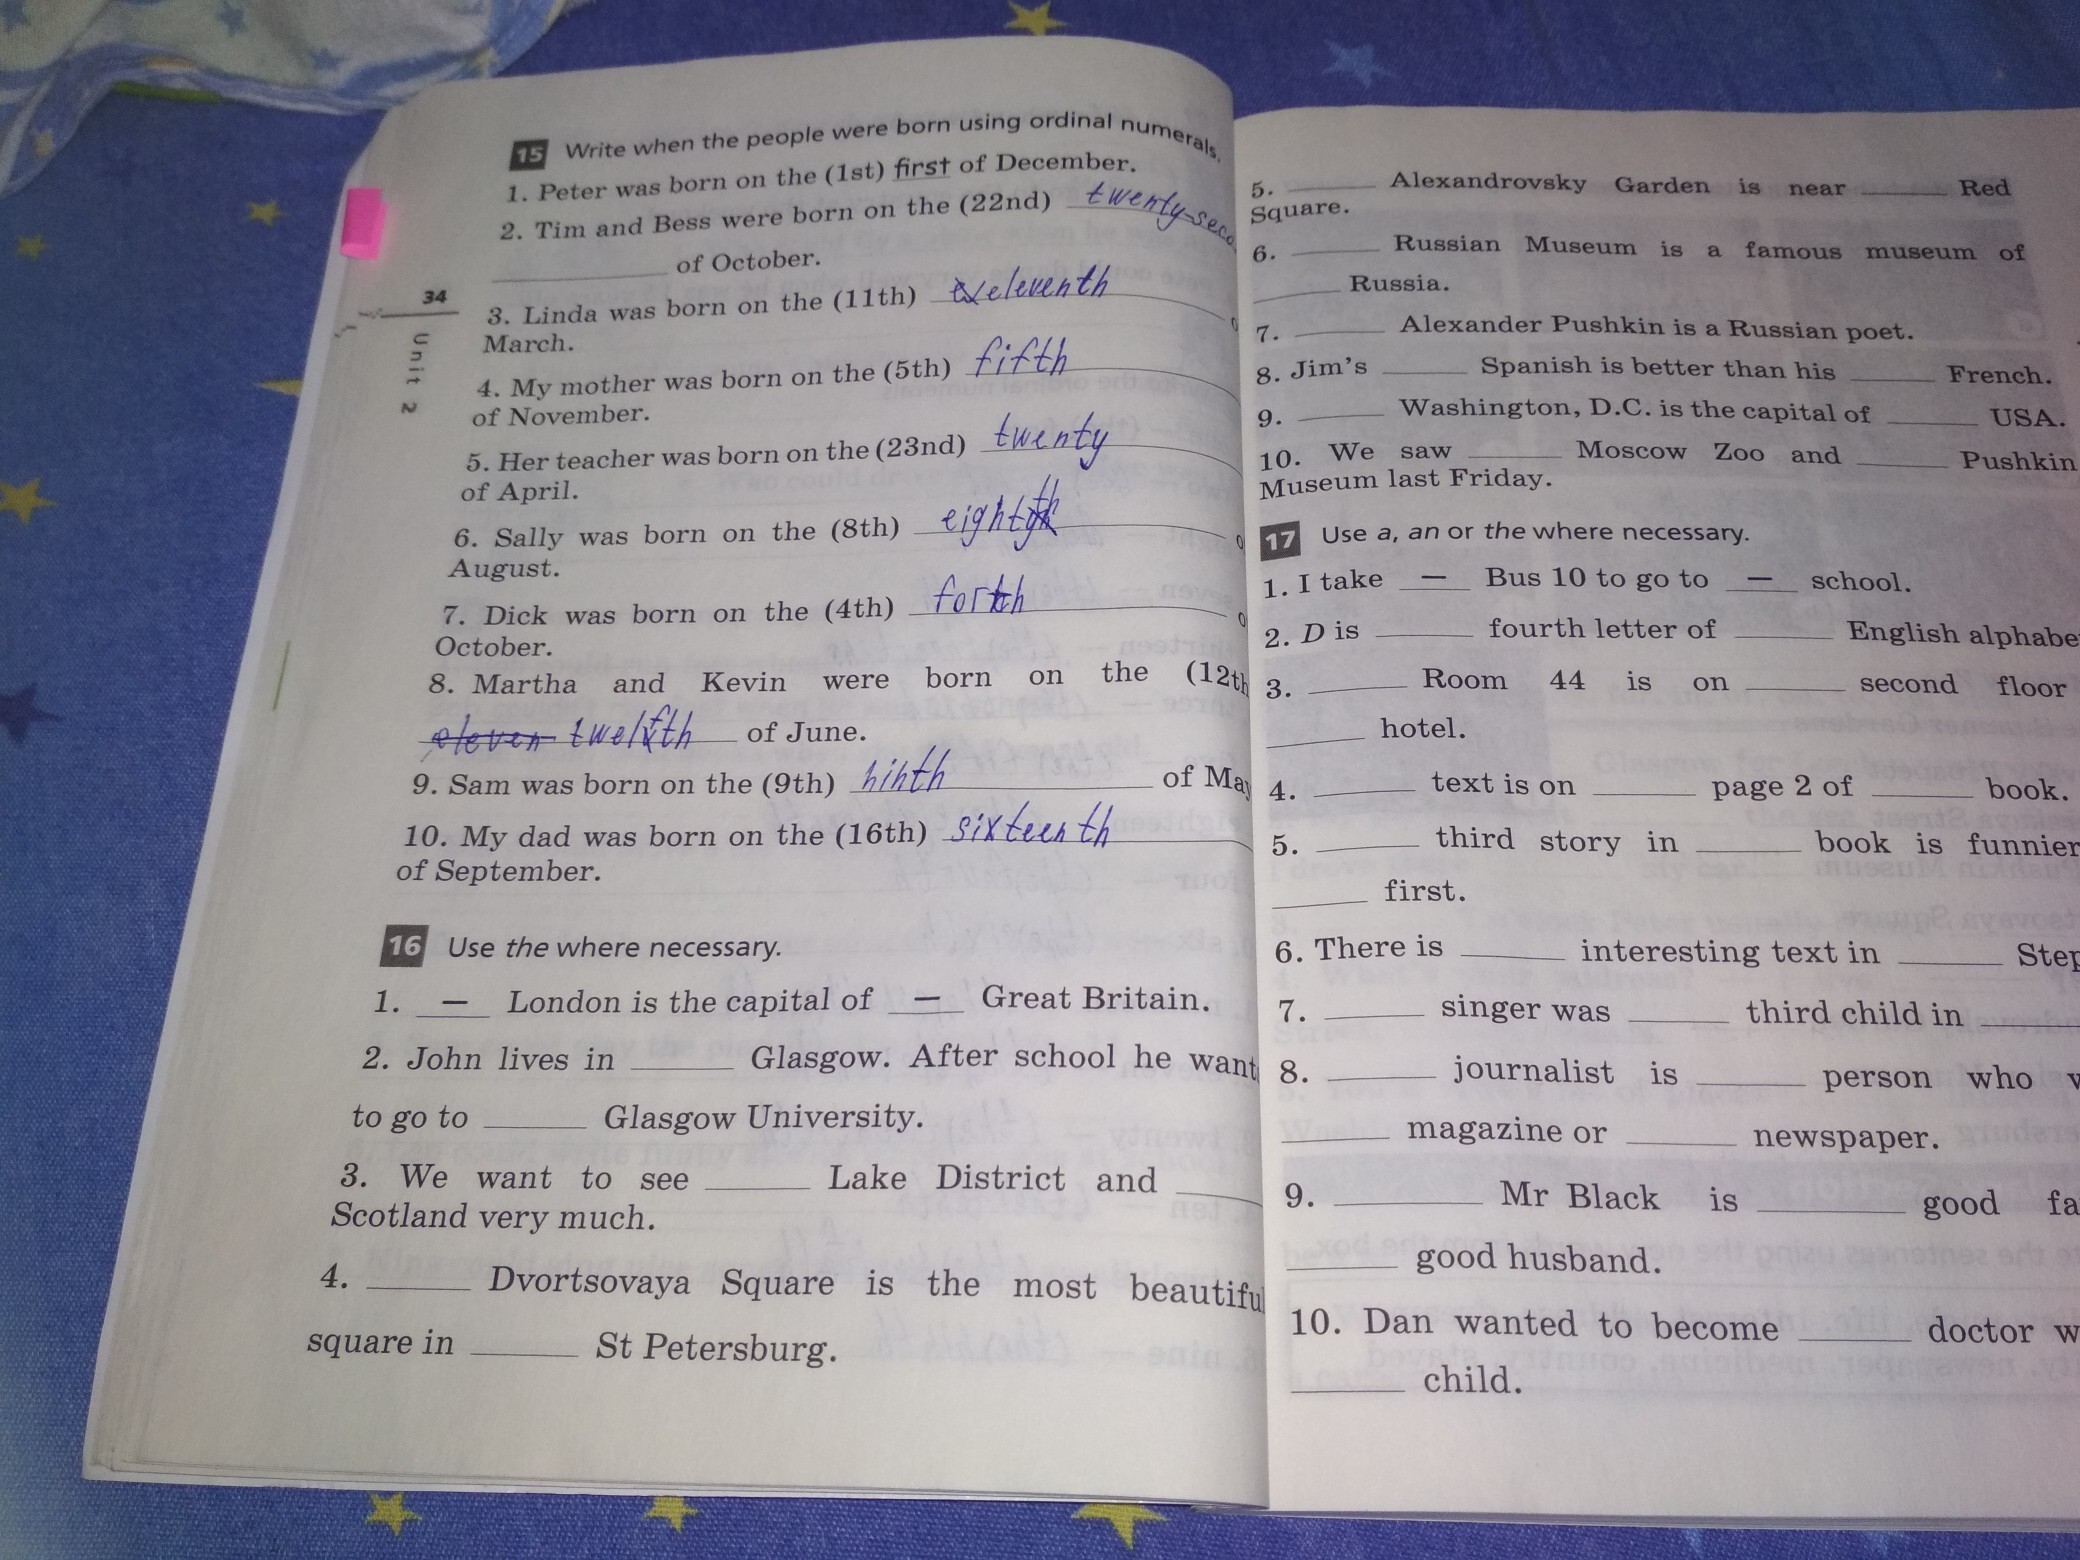 15 Write when the people were born using ordinal numerals.
1. Peter was born on the (1st) first of December.
2. Tim and Bess were born on the (22nd) twenty-seco
of October.
3. Linda was born on the (11th) eleventh o
March.
4. My mother was born on the (5th) fifth
of November.
5. Her teacher was born on the (23nd) twenty
of April.
6. Sally was born on the (8th) eighth o
August.
7. Dick was born on the (4th) forth o
October.
8. Martha and Kevin were born on the (12th
eleven twelfth of June.
9. Sam was born on the (9th) ninth of May
10. My dad was born on the (16th) sixteenth
of September.
34
Unit 2
16 Use the where necessary.
1. — London is the capital of — Great Britain.
2. John lives in ______ Glasgow. After school he want
to go to ______ Glasgow University.
3. We want to see ______ Lake District and ______
Scotland very much.
4. ______ Dvortsovaya Square is the most beautiful
square in ______ St Petersburg.
5. ______ Alexandrovsky Garden is near ______ Red
Square.
6. ______ Russian Museum is a famous museum of
______ Russia.
7. ______ Alexander Pushkin is a Russian poet.
8. Jim's ______ Spanish is better than his ______ French.
9. ______ Washington, D.C. is the capital of ______ USA.
10. We saw ______ Moscow Zoo and ______ Pushkin
Museum last Friday.
17 Use a, an or the where necessary.
1. I take — Bus 10 to go to — school.
2. D is ______ fourth letter of ______ English alphabe
3. ______ Room 44 is on ______ second floor
______ hotel.
4. ______ text is on ______ page 2 of ______ book.
5. ______ third story in ______ book is funnier
______ first.
6. There is ______ interesting text in ______ Step
7. ______ singer was ______ third child in
8. ______ journalist is ______ person who w
______ magazine or ______ newspaper.
9. ______ Mr Black is ______ good fa
______ good husband.
10. Dan wanted to become ______ doctor w
______ child.